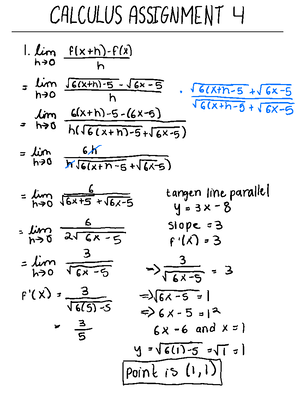 CALCULUS ASSIGNMENT 4
1. lim h→0 f(x+h)-f(x) / h
= lim h→0 √6(x+h)-5 - √6x-5 / h · √6(x+h-5 + √6x-5 / √6(x+h-5 + √6x-5
= lim h→0 6(x+h)-5-(6x-5) / h(√6(x+h)-5+√6x-5)
= lim h→0 6h / h√6(x+h-5+√6x-5)
= lim h→0 6 / √6x+5 + √6x-5
= lim h→0 6 / 2√6x-5
= lim h→0 3 / √6x-5
f'(x) = 3 / √6(5)-5
= 3/5
tangen line parallel
y = 3x-8
slope = 3
f'(x) = 3
=> 3 / √6x-5 = 3
=> √6x-5 = 1
=> 6x-5 = 1²
6x-6 and x=1
y = √6(1)-5 = √1 = 1
point is (1,1)